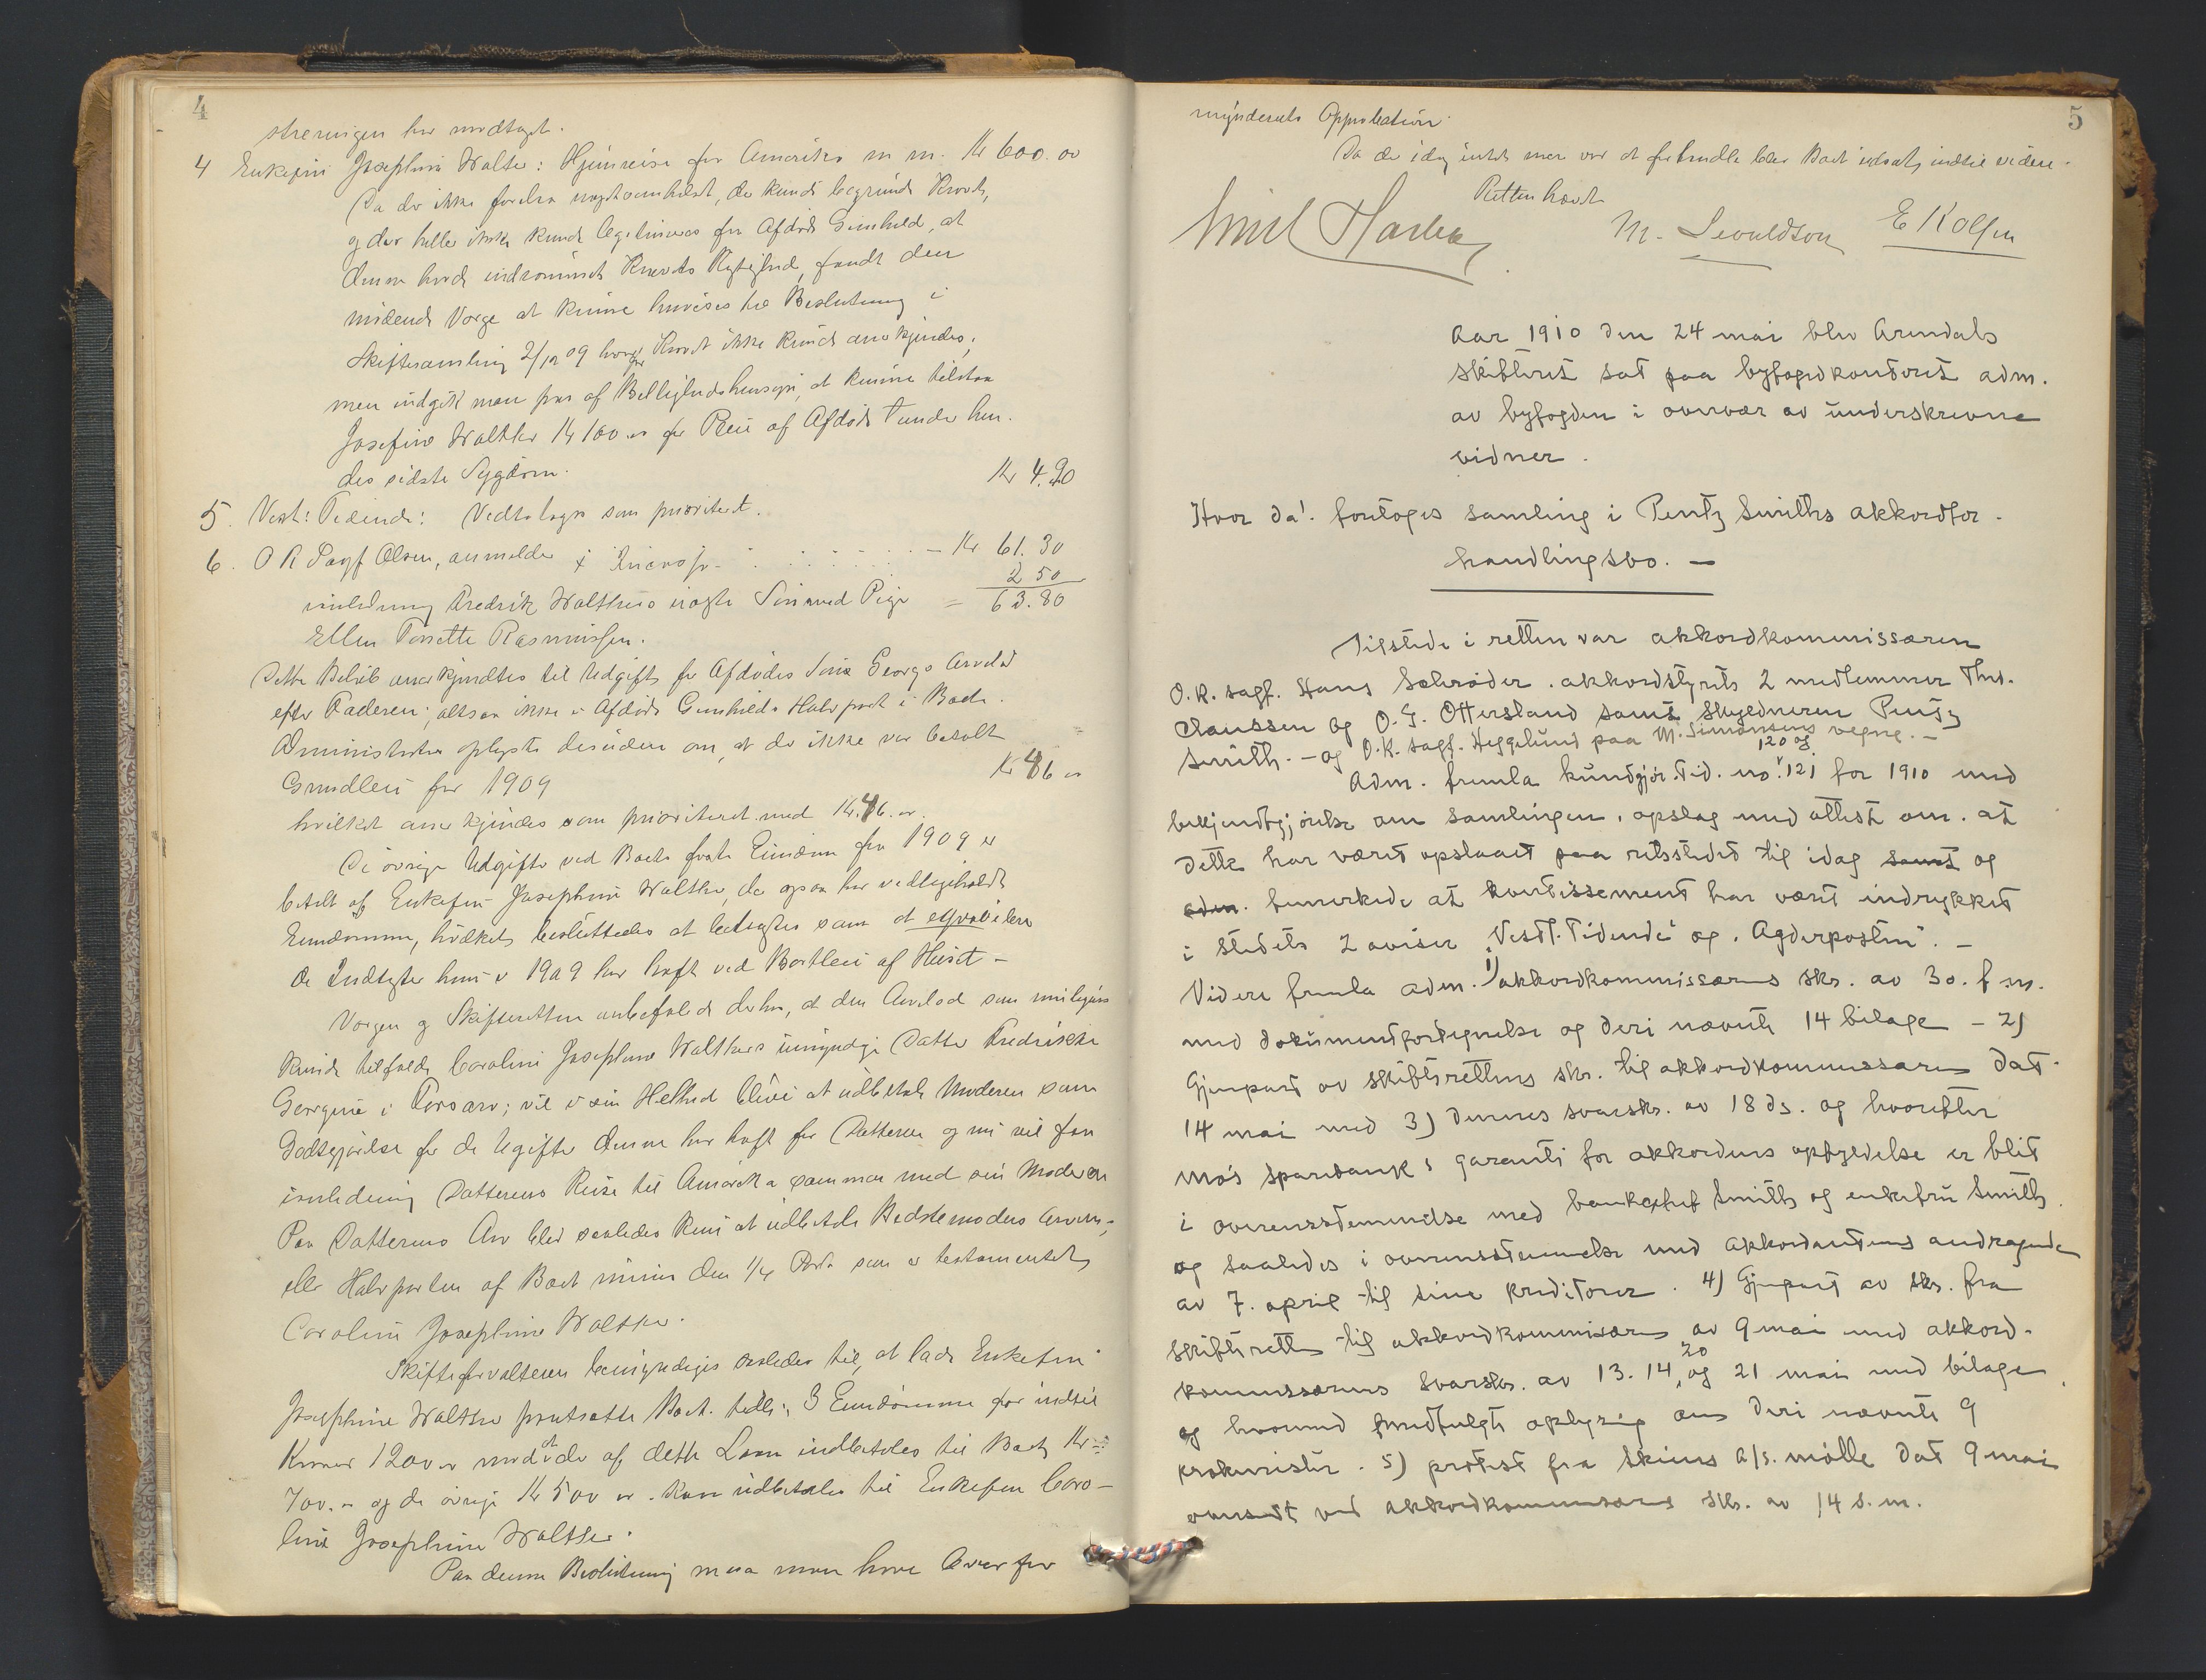 4
har modtaget.
4 Enkefru Josephine Walter: Hjemreise fra Amerika m m. Kr 600.00
Da der ikke forelaa nogetsomhelst, der kunde begrunde Kravet,
og der heller ikke kunde legitimeres fra Afdøde Gunhild, at
denne havde indrømmet Kravets Rigtighed, fandt den
mødende Vorge at kunne henvises til Beslutning i
Skiftesamling 2/12 09 hvorfor Kravet ikke kunde anerkjendes;
men indgik man paa af Billighedshensyn, at kunne tilstaa
Josefine Walther Kr 100.00 for Pleie af Afdøde under hen-
des sidste Sygdom.
5. Vest: Tidende: Vedtoges som prioritert. Kr 4.20
6. O R Sagf Olsen, anmelder - Kr 61.30
2 50
anledning Fredrik Walthers uægte Søn med Pige = 63.80
Ellen Tomette Rasmussen.
Dette Beløb anerkjendtes til Udgift for Afdødes Søns Georgs Arvelod
efter Faderen; altsaa ikke i Afdøde Gunhilds Halvpart i Boet.
Administrator oplyste desuden om, at der ikke var betalt
Grundleie for 1909 Kr 46 00
hvilket anerkjendes som prioriteret med Kr. 46.00.
De øvrige Udgifter ved Boets faste Eiendom for 1909 er
betalt af Enkefru Josephine Walther, der ogsaa har vedligeholdt
Eiendommen, hvilket besluttedes at betragtes som et
de Indtægter hun i 1909 har havt ved Bortleie af Huset -
Vorgen og Skifteretten anbefalede derhos, at den Arvelod som muligens
kunde tilfalde Caroline Josephine Walthers umyndige Datter Fredrikke
Georgine i Farsarv; vil i sin Helhed blive at udbetale Moderen som
Godtgjørelse for de Udgifter denne har havt for Datteren og nu vil faa
i anledning Datterens Reise til Amerika sammen med sin Moder.
Paa Datterens Arv blev saaledes kun at udbetale Bedstemoders Arven,
eller Halvparten af Boet minus den 1/4 Part som er testamenteret
Caroline Josephine Walther.
Skifteforvalteren bemyndiges saaledes til, at lade Enkefru
Josephine Walther pantsætte Boet tilh: Eiendomme for indtil
Kroner 1200.00 mod at der af dette Laan indbetales til Boet Kr
700.00 og de øvrige Kr 500 00 kan udbetales til Enkefru Caro-
line Josephine Walther.
Paa denne Beslutning maa man have Overfor
5
mynderiets Approbation.
Da der idag intet mer var at forhandle blev Boet udsat indtil videre.
Retten hævet
Emil M. E Rolfsen
Aar 1910 den 24 mai blev Arendals
skifteret sat paa byfogedkontoret adm.
av byfogden i overvær av underskrevne
vidner.
Hvor da! foretoges samling i Pentz Smiths akkordfor-
handlingsbo. -
Tilstede i retten var akkordkommissæren
O.R. sagf. Hans Schrøder. akkordstyrets 2 medlemmer Ths.
Claussen og O. G. Ottersland samt skyldneren Pentz
Smith. - og O.R. sagf. Heggelund paa M. Simonsens vegne. -
Adm. fremla kundgjør. Tid. no. 120 og 121 for 1910 med
bekjendtgjørelse om samlingen, opslag med attest om at
dette har været opslaaet paa retsstedet til idag samt og
adm. bemerkede at avertissement har været indrykket
i stedets 2 aviser „Vestl. Tidende“ og „Agderposten“. -
Videre fremla adm. 1) akkordkommissærens skr. av 30. f m.
med dokumentfortegnelse og deri nævnte 14 bilage - 2)
Gjenpart av skifterettens skr. til akkordkommissæren dat.
14 mai med 3) dennes svarskr. av 18 ds. og hvorefter
mo's sparebank's garanti for akkordens opfyldelse er blit
i overensstemmelse med bankchef Smith og enkefru Smith
og saaledes i overensstemmelse med akkordantens andragende
av 7. april til sine kreditorer. 4) Gjenpart av skr. fra
skifteretten til akkordkommissæren av 9 mai med akkord-
kommissærens svarskr. av 13. 14, 20 og 21 mai med bilage
og hvormed fremfulgte oplysning om deri nævnte 9
prokurister. 5) protest fra Skiens A/S. mølle dat 9 mai
oversendt ved akkordkommissærens skr. av 14 s. m.